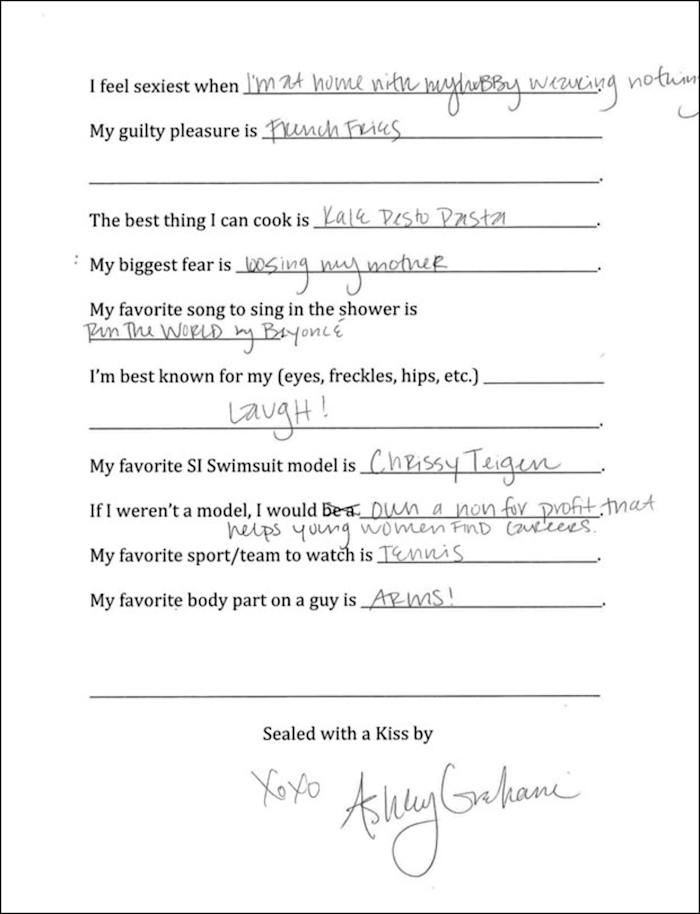 I feel sexiest when I'm at home with my huBBy wearing nothing
My guilty pleasure is French Fries
.
The best thing I can cook is Kale Pesto Pasta.
: My biggest fear is loosing my mother.
My favorite song to sing in the shower is
Run The WORLD by Beyoncé
I'm best known for my (eyes, freckles, hips, etc.)
LaugH!.
My favorite SI Swimsuit model is Chrissy Teigen.
If I weren't a model, I would be a own a non for profit. that
helps young women FIND careers.
My favorite sport/team to watch is Tennis.
My favorite body part on a guy is ARMS!.
Sealed with a Kiss by
XoXo Ashley Graham